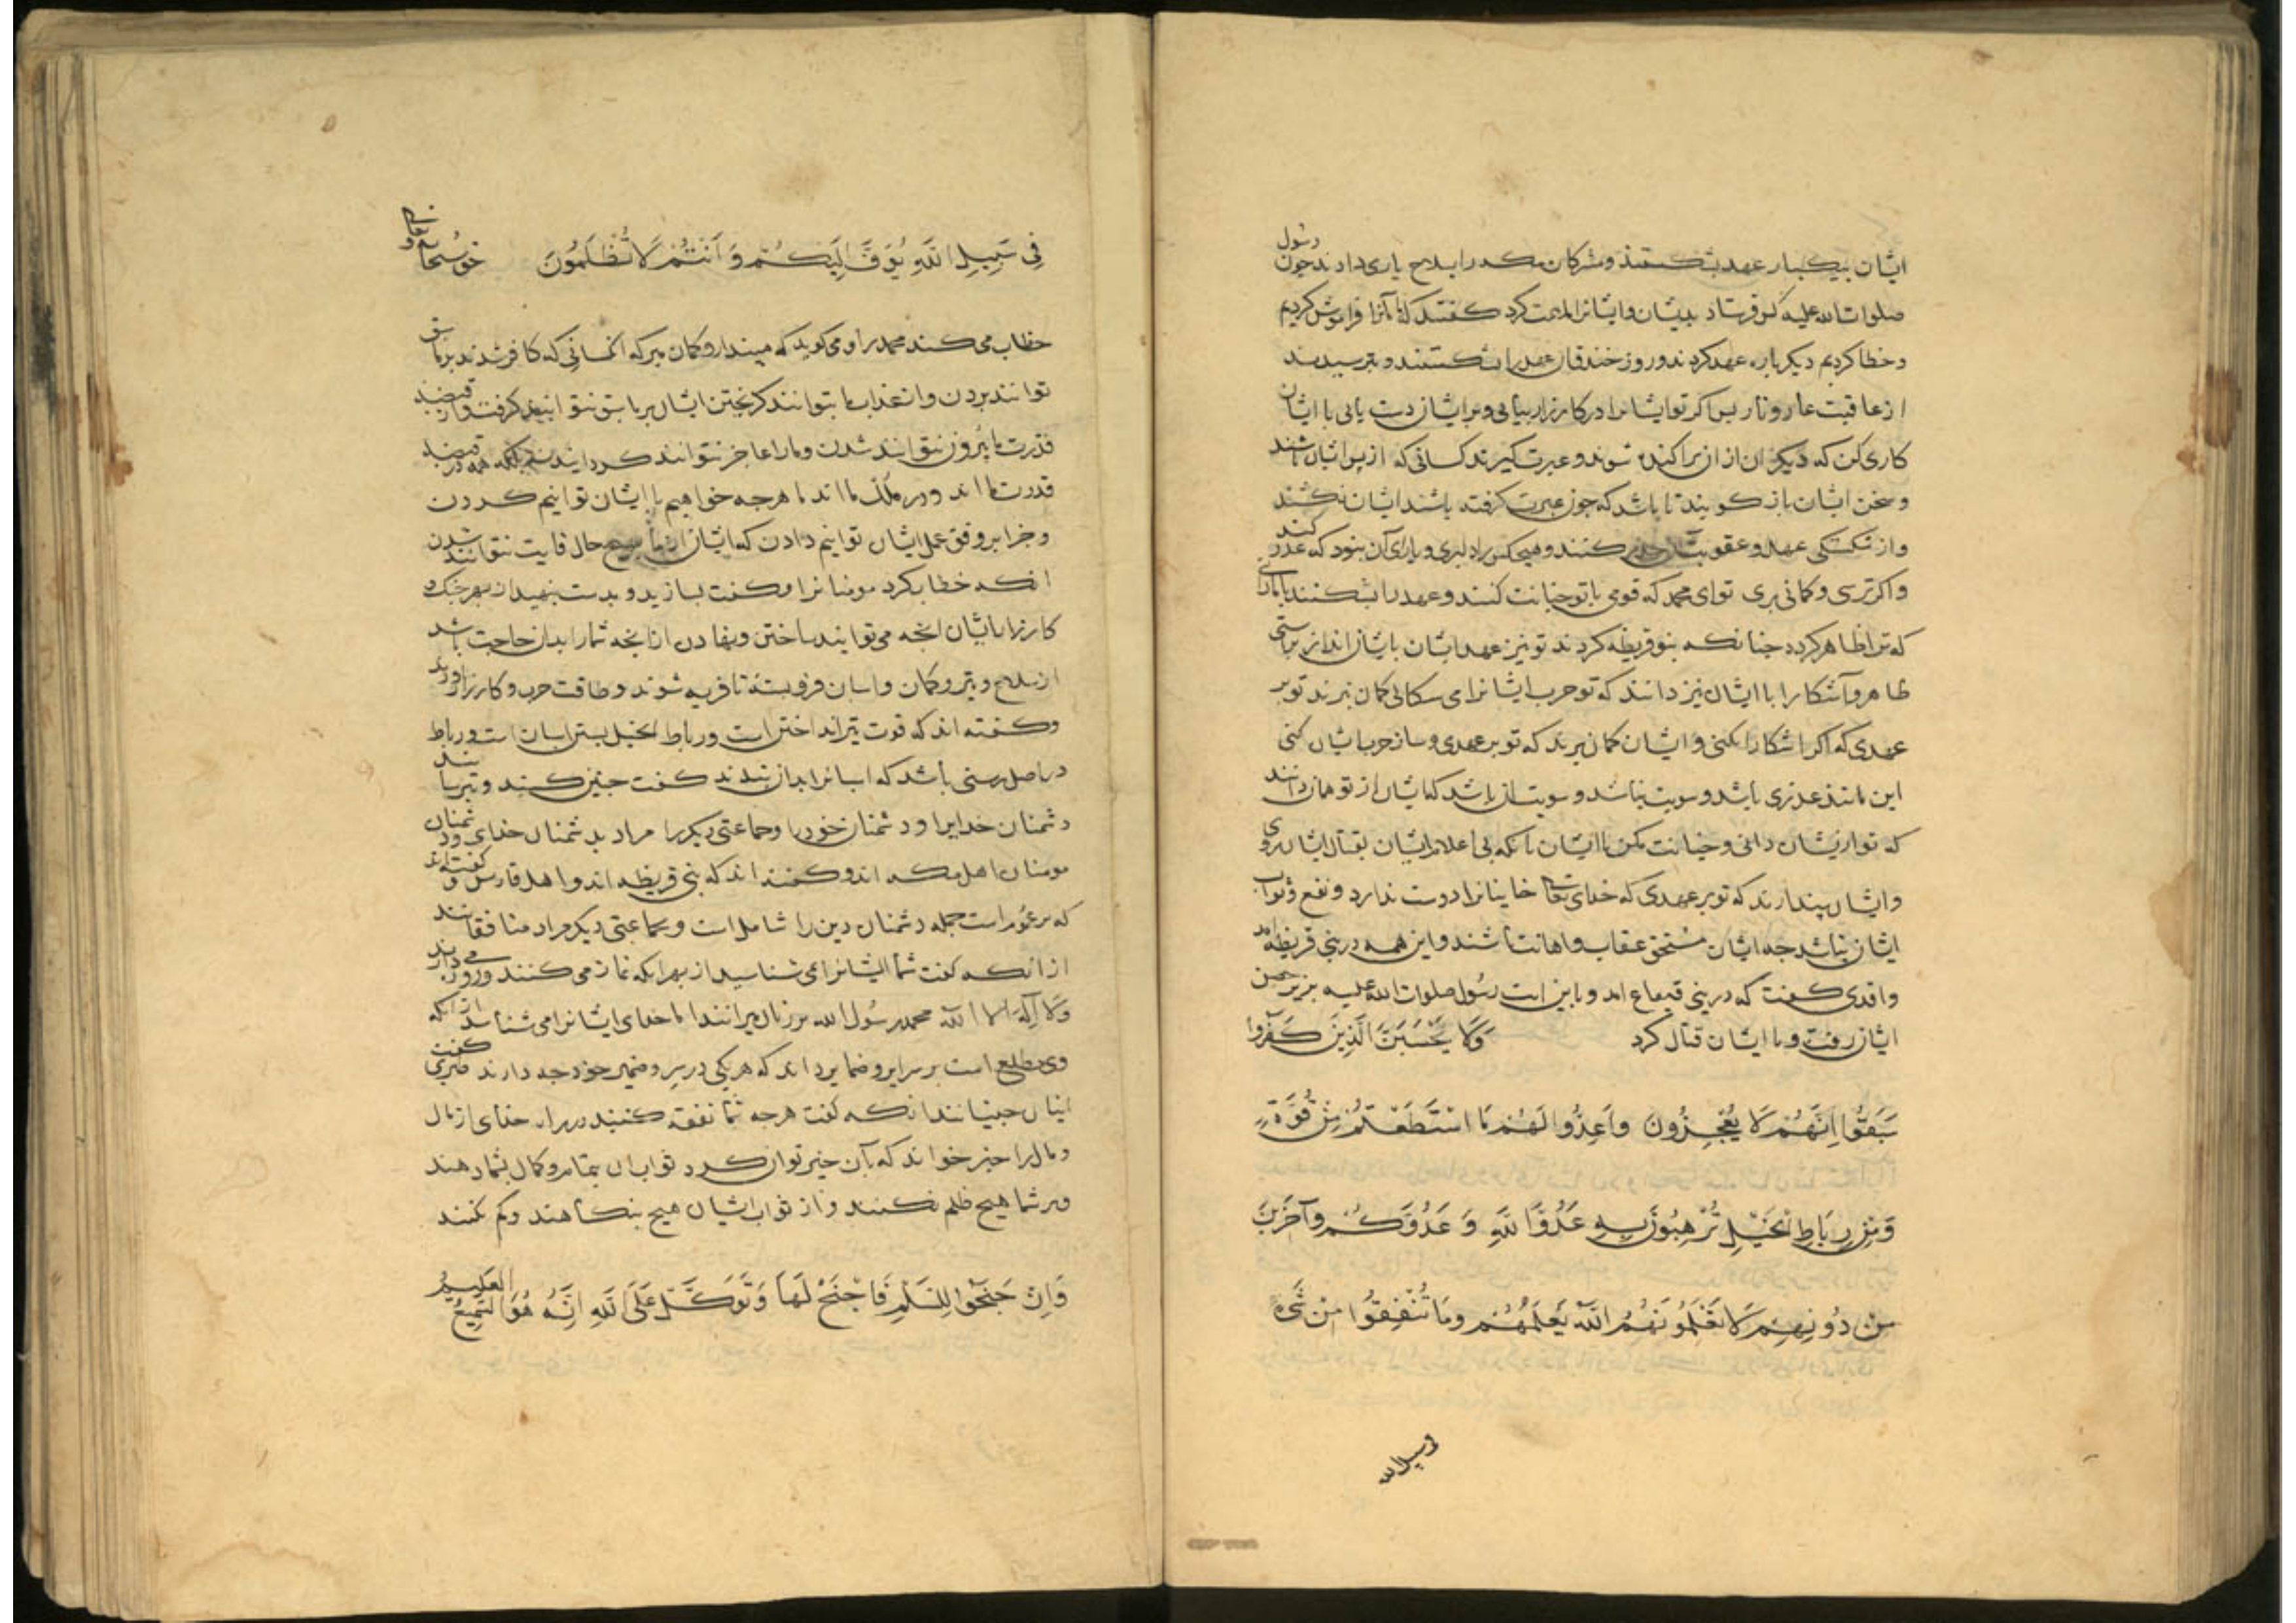 ایشان بیکبار عهد بشکستند و مشرکان مکه را بسلاح یاری دادند چون رسول
صلوات الله علیه کس فرستاد بدیشان و ایشانرا ملامت کرد کفتند که ما آنرا فراموش کردیم
و خطا کردیم دیکر باره عهد کردند و روز خندق آن عهد را بشکستند و نترسیدند
از عاقبت عار و نار بس اکر تو ایشانرا در کارزار بیابی و بر ایشان دست یابی با ایشان
کاری کن که دیکران از ان براکنده شوند و عبرت کیرند کسانی که از بس ایشان باشند
و سخن ایشان باز کویند تا باشد که چون عبرت کرفته باشند ایشان نکشند
و از شکستکی عهد و عقوبت حذر کنند و هیچ کس را دلیری و یارای آن نبود که غدر کند
و اکر ترسی و کمانی بری تو ای محمد که قومی با تو خیانت کنند و عهد را بشکنند
که ترا ظاهر کردد جنانکه بنو قریظه کردند تو نیز عهد ایشان بایشان انداز براستی
ظاهر و آشکارا با ایشان نیز دانند که تو حرب ایشانرا می سکالی کمان نبرند تو بر
عهدی که اکر اشکارا نکنی و ایشان کمان برند که تو بر عهدی و ساز حرب ایشان کنی
این مانند غدری باشد و سویت نباشد و سویت آن باشد که ایشان از تو همان دانند
که تو از یشان دانی و خیانت مکن با ایشان بانکه بی اعلام ایشان بقتال ایشان روی
و ایشان بندارند که تو بر عهدی که خدای تعالی خاینانرا دوست ندارد و نفع و ثواب
ایشان نباشد جه ایشان مستحق عقاب و اهانت باشند و این همه در بنی قریظه اند
واقدی کفت که در بنی قینقاع امد و باین ایت رسول صلوات الله علیه بزیر حصن
ایشان رفت و با ایشان قتال کرد وَلَا يَحْسَبَنَّ الَّذِينَ كَفَرُوا
سَبَقُوا اِنَّهُمْ لَا يُعْجِزُونَ وَاَعِدُّوا لَهُمْ مَا اسْتَطَعْتُمْ مِنْ قُوَّةٍ
وَمِنْ رِبَاطِ الْخَيْلِ تُرْهِبُونَ بِهِ عَدُوَّ اللَّهِ وَ عَدُوَّكُمْ وَآخَرِينَ
مِنْ دُونِهِمْ لَا تَعْلَمُونَهُمْ اللَّهُ يَعْلَمُهُمْ وَمَا تُنْفِقُوا مِنْ شَيْءٍ
فی سبیل الله
فِي سَبِيلِ اللَّهِ يُوَفَّ اِلَيْكُمْ وَ اَنْتُمْ لَا تُظْلَمُونَ
خطاب می کند محمد را و می کوید که مبندار و کمان مبر که انکسانی که کافر شدند بر ما سبق
توانند بردن و از عذاب ما بتوانند کریختن ایشان بر ما سبق نتوانند کرفت و از قبضه
قدرت ما بیرون نتوانند شدن و ما را عاجز نتوانند کردانیدن بلکه همه در قبضه
قدرت ما اند و در ملک ما اند ما هرجه خواهیم با ایشان توانیم کردن
و جزا بر وفق عمل ایشان توانیم دادن که ایشان از ما بهیچ حال فایت نتوانند شدن
انکه خطاب کرد مومنانرا و کفت بسازید و بدست بنهید از بهر جنک و
کارزار بایشان انجه می توانید ساختن و بنهادن از انجه شما را بدان حاجت باشد
از سلاح و تیر و کمان و اسبان فرو بسته تا فربه شوند و طاقت حرب و کارزار اورند
و کفته اند که قوت تیر انداختن است و رباط الخیل بستن اسبان است و رباط
در اصل رسنی باشد که اسبانرا بدان بندند کفت جنین کنید و بترسانید
دشمنان خدایرا و دشمنان خود را و جماعتی دیکر را مراد بدشمنان خدای و دشمنان
مومنان اهل مکه اند و کفته اند که بنی قریظه اند و اهل فارس و کفته اند
که بر عموم است جمله دشمنان دین را شامل است و بجماعتی دیکر مراد منافقانند
از انکه کفت شما ایشانرا می شناسید از بهر انکه نماز می کنند و روزه می دارند
و لا اله الا الله محمد رسول الله بر زبان میرانند اما خدای ایشانرا می شناسد از انکه
وی مطلع است بر سرایر و ضمایر داند که هر یکی در سر و ضمیر خود جه دارند طبری کفت
اینان جنیانند انکه کفت هرجه شما نفقه کنید در راه خدای از مال
و مال را خیر خواند که بآن خیر توان کرد ثواب ان بتمام و کمال بشما دهند
و بر شما هیچ ظلم نکنند و از ثواب ایشان هیچ بنکاهند و کم نکنند
وَاِنْ جَنَحُوا لِلسَّلْمِ فَاجْنَحْ لَهَا وَتَوَكَّلْ عَلَى اللَّهِ اِنَّهُ هُوَ السَّمِيعُ الْعَلِيمُ